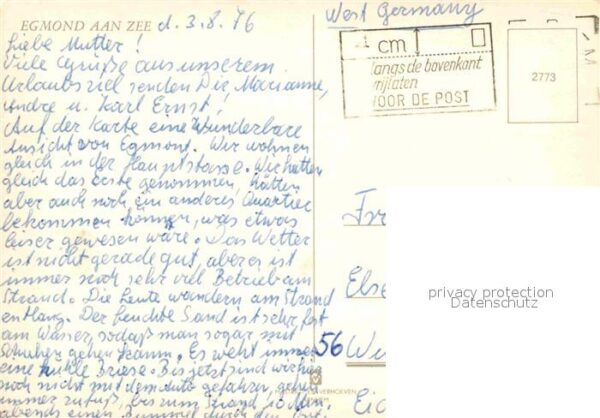 EGMOND AAN ZEE d. 3.8.76
Liebe Mutter!
Viele Grüße aus unserem
Urlaubsziel senden Dir Marianne,
Andre u. Karl Ernst!
Auf der Karte eine Wunderbare
Ansicht von Egmont. Wir wohnen
gleich in der Hauptstrasse. Wir hatten
gleich das Erste genommen, hätten
aber auch noch ein anderes Quartier
bekommen können, was etwas
leiser gewesen wäre. Das Wetter
ist nicht gerade gut, aber es ist
immer noch sehr viel Betrieb am
Strand. Die Leute wandern am Strand
entlang. Der feuchte Sand ist sehr fest
am Wasser, sodaß man sogar mit
Schuhen gehen kann. Es weht immer
eine kühle Briese. Bis jetzt sind wir
noch nicht mit dem Auto gefahren, gehen
immer zufuß, bis zum Strand
abends einen Bummel durch den
West Germany
1 cm
langs de bovenkant
vrijlaten
VOOR DE POST
2773
M
Fr
Else
56 Wu
Eic
privacy protection
Datenschutz
VERHOEVEN